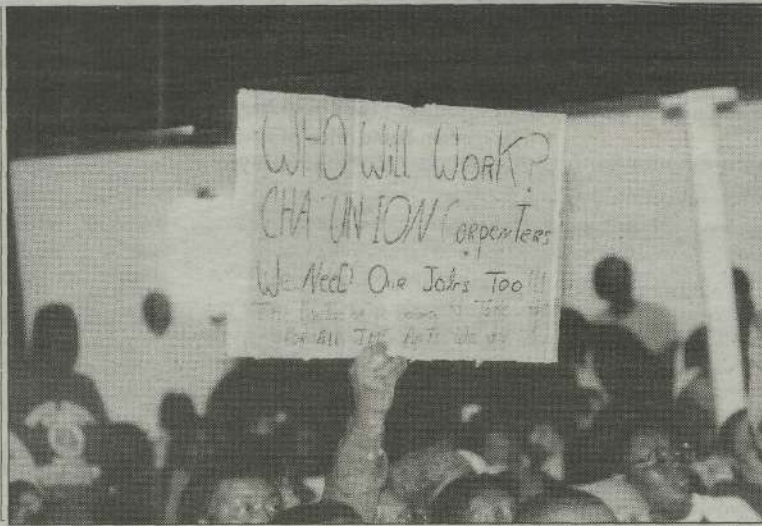 WHO WILL WORK?
CHA UNION CARPENTERS
WE NEED OUR JOBS TOO!!!
FOR ALL THE